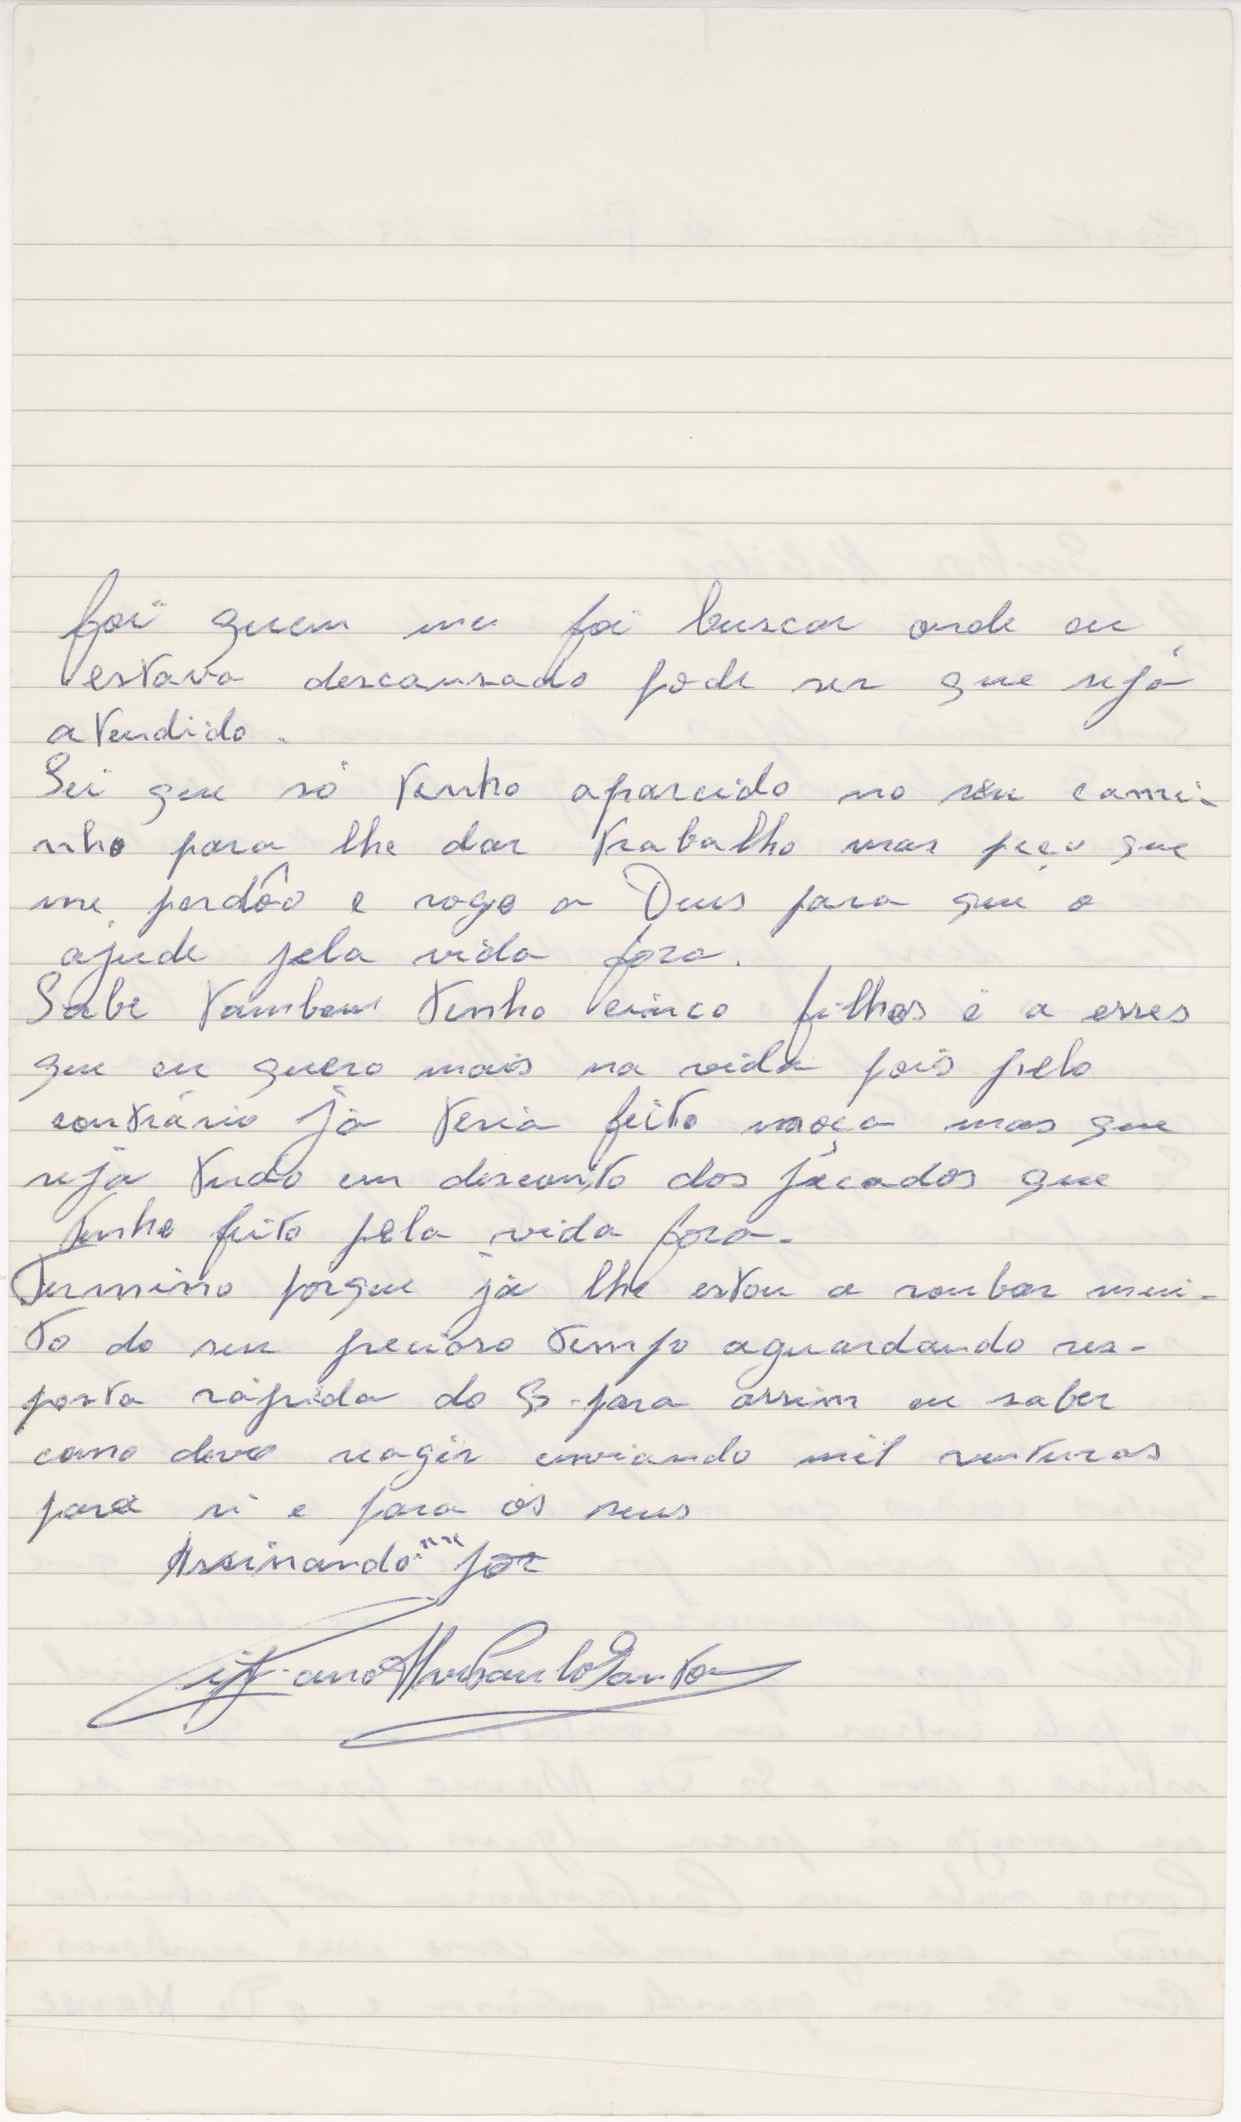 foi quem me foi buscar onde eu
estava descansado pode ser que sejá
atendido.
Sei que só tenho aparcido no seu cami-
nho para lhe dar trabalho mas peço que
me perdôo e rogo a Deus para que o
ajude pela vida fora.
Sabe tambem tenho cinco filhos é a esses
que eu quero mais na vida pois pelo
contrário já teria feito mas que
seja tudo em desconto dos pecados que
tenho feito pela vida fora.
Termino porque já lhe estou a roubar mui-
to do seu precioso tempo aguardando res-
posta rápida do Sr. para assim eu saber
como devo reagir enviando mil venturas
para si e para os seus
Assinando por
Santos